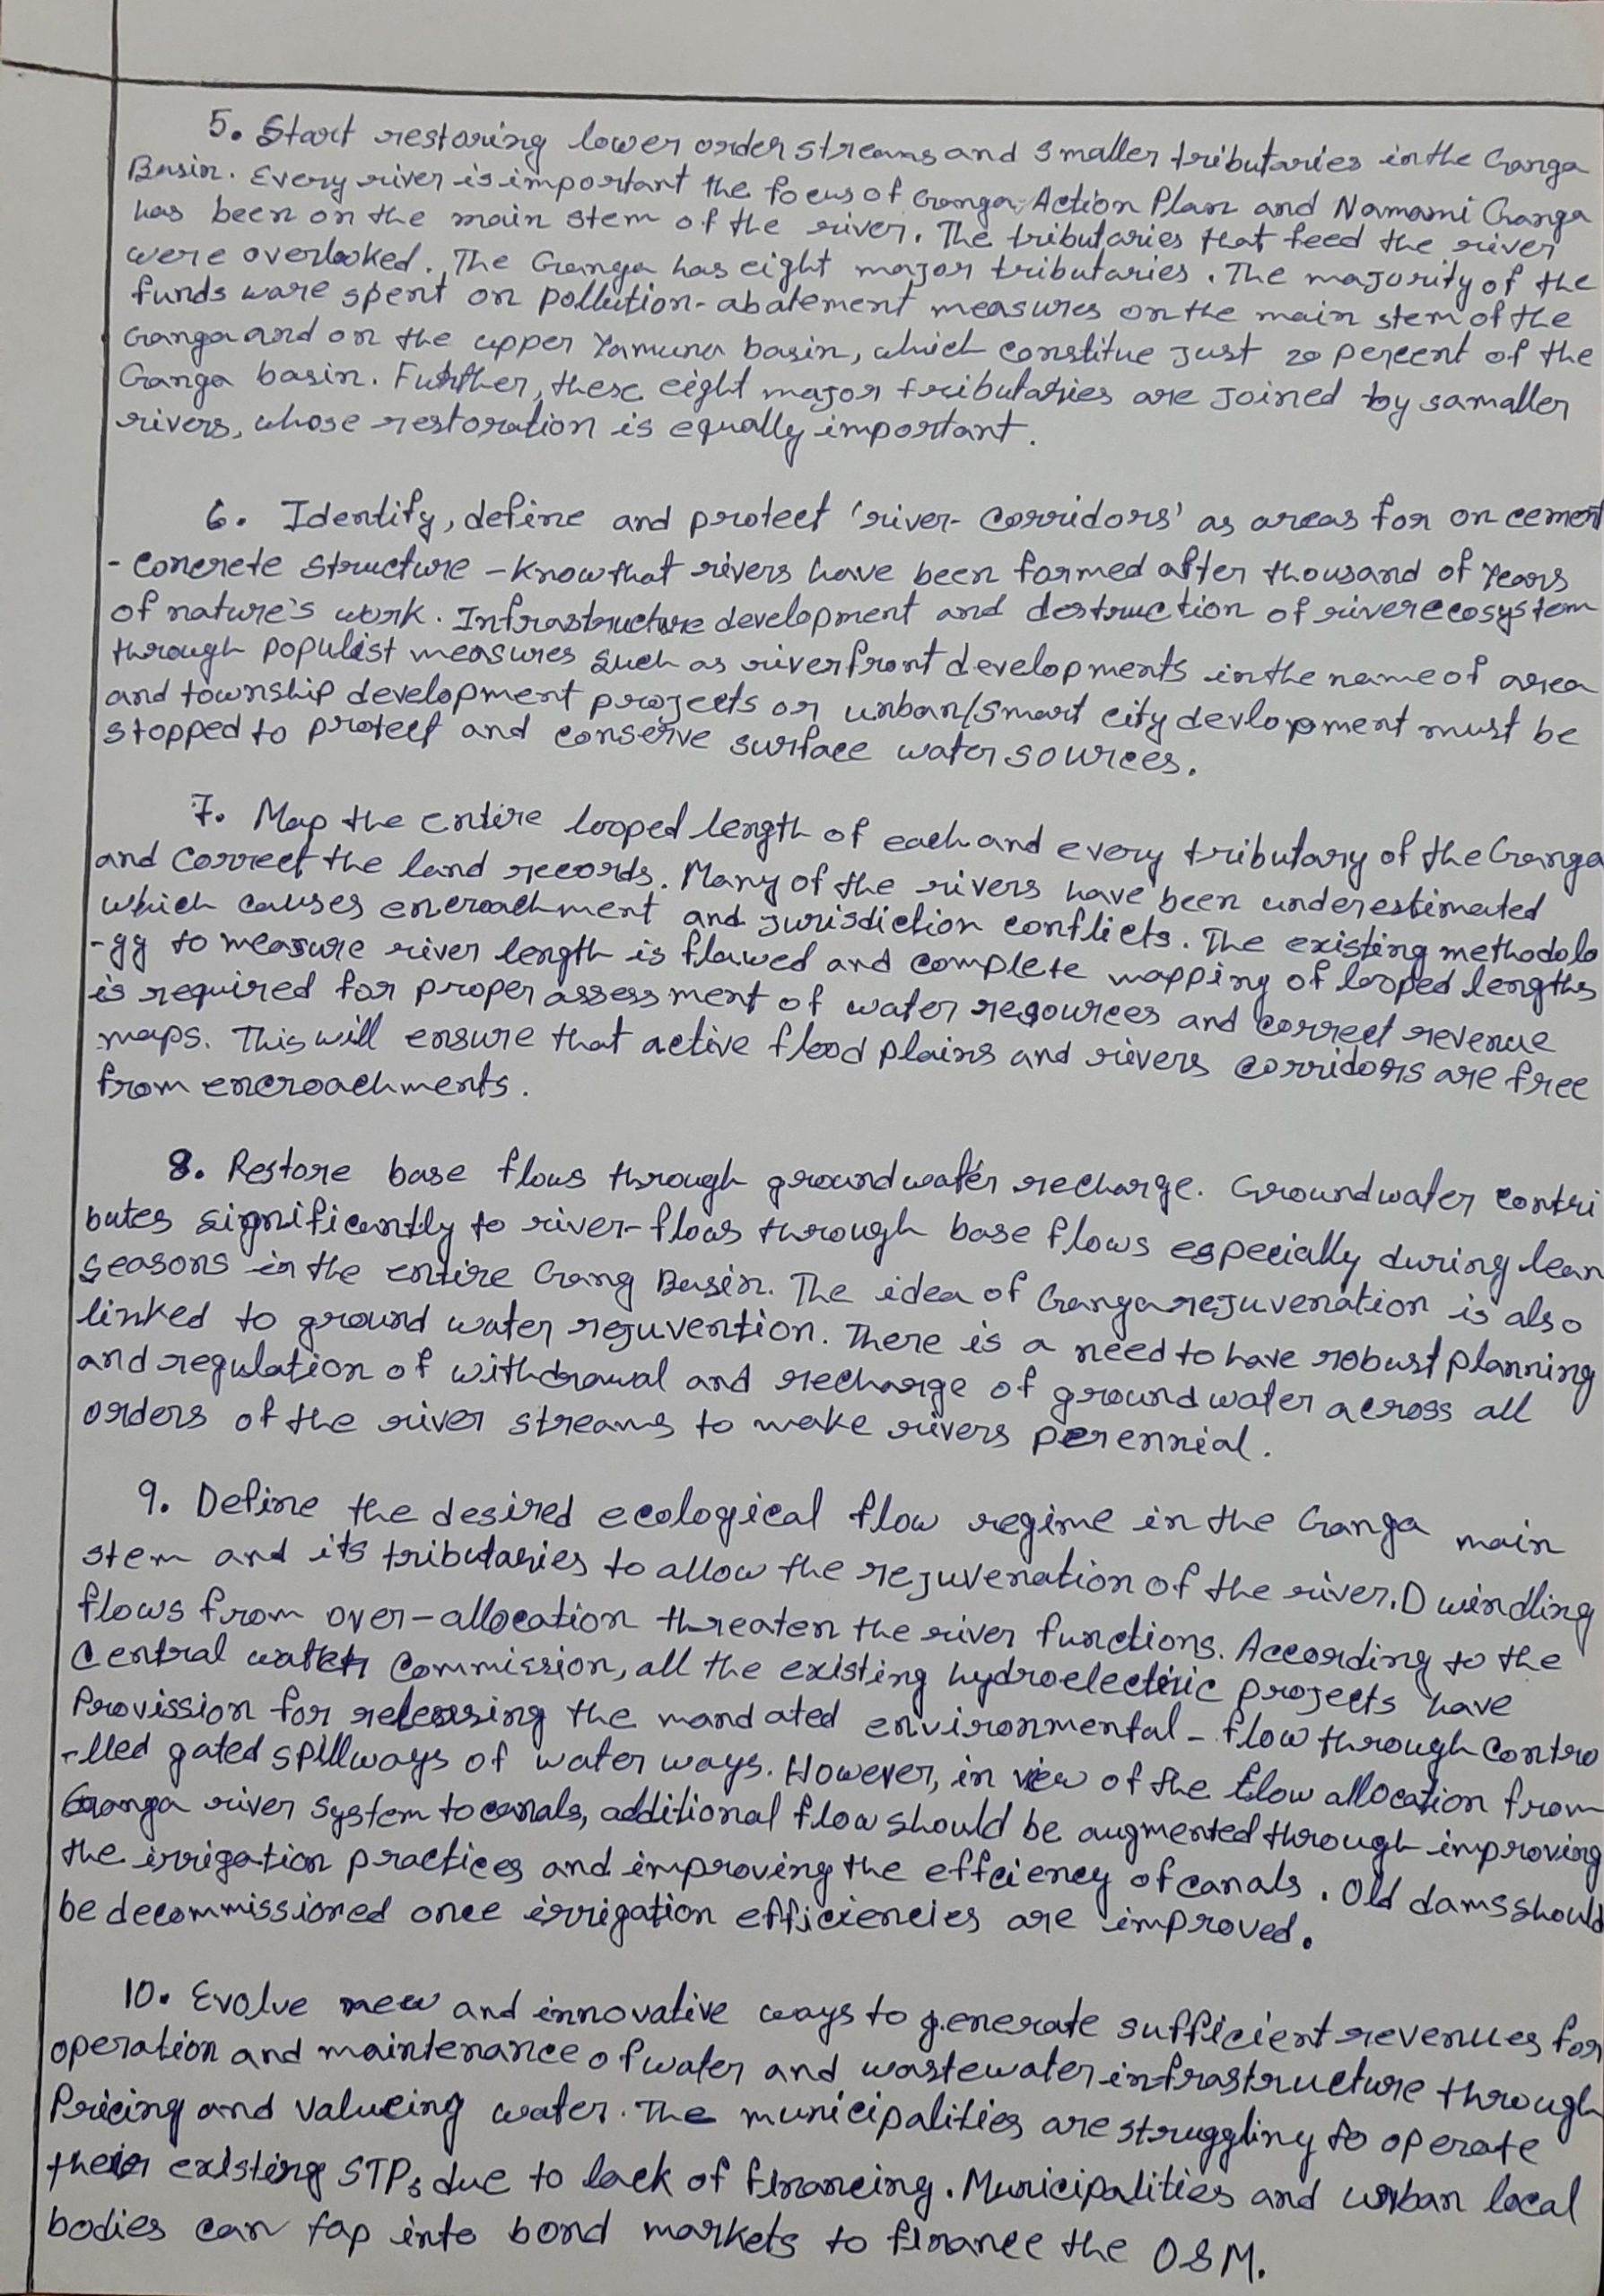 5. Start restoring lower order streams and smaller tributaries in the Ganga
Basin. Every river is important the focus of Ganga Action Plan and Namami Ganga
has been on the main stem of the river. The tributaries that feed the river
were overlooked. The Ganga has eight major tributaries. The majority of the
funds ware spent on pollution-abatement measures on the main stem of the
Ganga and on the upper Yamuna basin, which constitue just 20 percent of the
Ganga basin. Further, these eight major tributaries are joined by samaller
rivers, whose restoration is equally important.
6. Identify, define and protect 'river-corridors' as areas for on cement
-concrete structure – know that rivers have been formed after thousand of years
of nature's work. Infrastructure development and destruction of river ecosystem
through populist measures such as riverfront developments in the name of area
and township development projects or urban/smart city devlopment must be
stopped to protect and conserve surface water sources.
7. Map the entire looped length of each and every tributary of the Ganga
and correct the land records. Many of the rivers have been underestimated
which causes encroachment and jurisdiction conflicts. The existing methodolo
-gy to measure river length is flawed and complete mapping of looped lengths
is required for proper assessment of water resources and correct revenue
maps. This will ensure that active flood plains and rivers corridors are free
from encroachments.
8. Restore base flows through groundwater recharge. Groundwater contri
butes significantly to river-flows through base flows especially during lean
seasons in the entire Gang Basin. The idea of Ganga rejuvenation is also
linked to ground water rejuvention. There is a need to have robust planning
and regulation of withdrawal and recharge of ground water across all
orders of the river streams to make rivers perennial.
9. Define the desired ecological flow regime in the Ganga main
stem and its tributaries to allow the rejuvenation of the river. Dwindling
flows from over-allocation threaten the river functions. According to the
Central water Commission, all the existing hydroelectric projects have
Provission for releasing the mandated environmental - flow through contro
-lled gated spillways of water ways. However, in view of the flow allocation from
Ganga river system to canals, additional flow should be augmented through improving
the irrigation practices and improving the effciency of canals. Old dams should
be decommissioned once irrigation efficiencies are improved.
10. Evolve new and innovative ways to generate sufficient revenues for
operation and maintenance of water and wastewater infrastructure through
Pricing and valueing water. The municipalities are struggling to operate
their existing STPs due to lack of financing. Municipalities and urban local
bodies can tap into bond markets to finance the O&M.